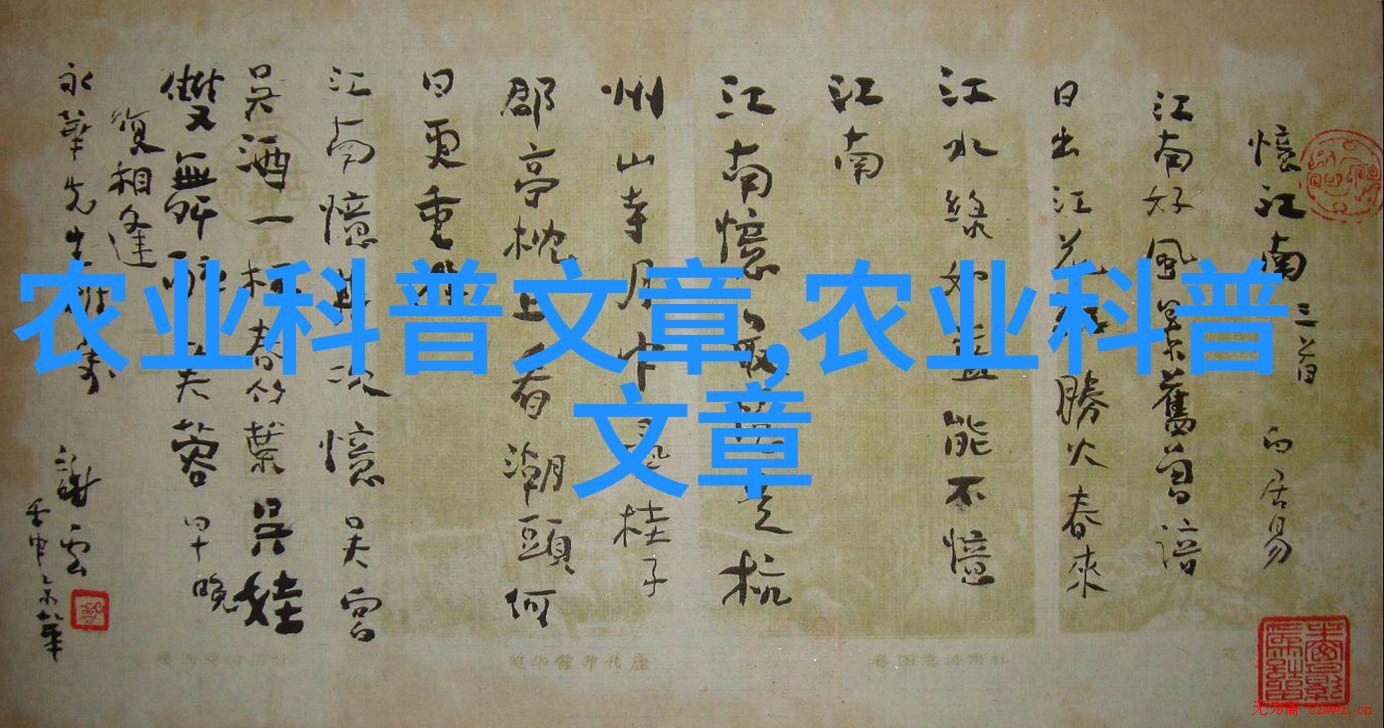 农业科普文章,农业科普
文章
憶江南三首 白居易
江南好風景舊曾諳
日出江花紅勝火春來
江水綠如藍能不憶
江南
江南憶最憶是杭
州山寺月中尋桂子
郡亭枕上看潮頭何
日更重遊
江南憶其次憶吳宮
吳酒一杯春竹葉吳娃
雙舞醉芙蓉早晚
復相逢
永華先生雅
謝雲
壬申京華